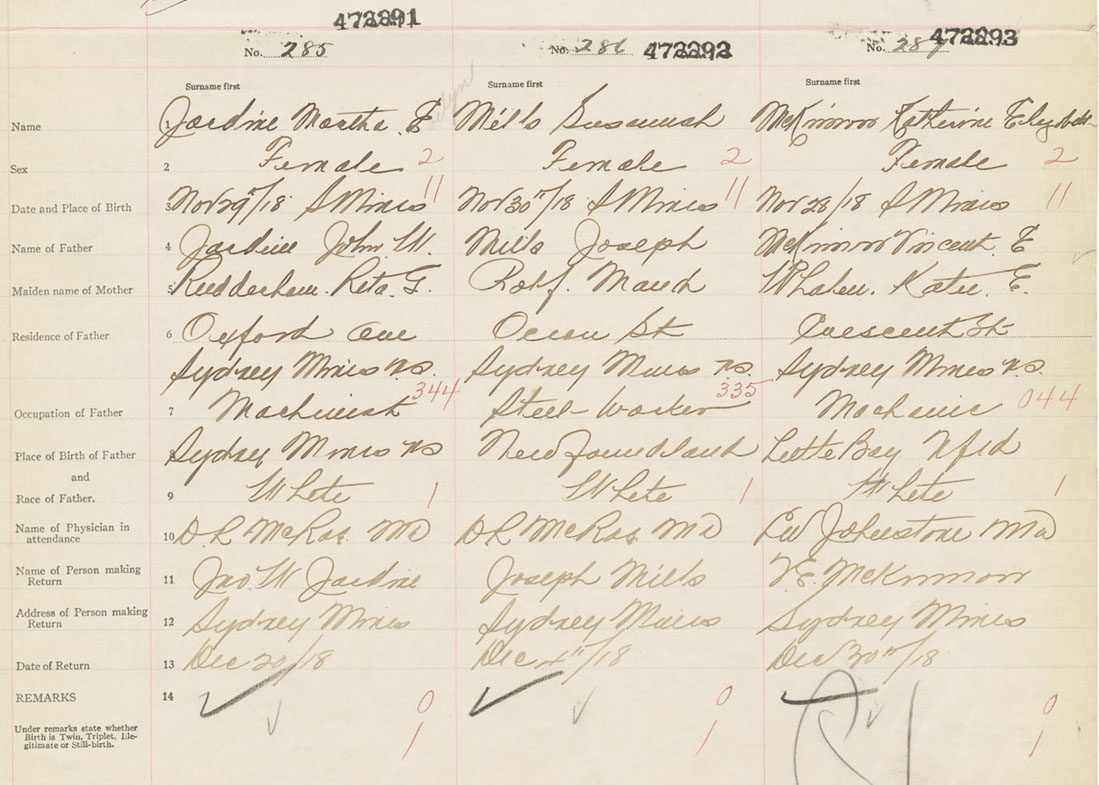 472291
No. 285
No. 286
472292
No. 287
472293
Surname first
Surname first
Surname first
Name
1 Jardine Martha E
Mills Susannah
McKinnon Katherine Elizabeth
Sex
2 Female 2
Female 2
Female 2
Date and Place of Birth
3 Nov 29th/18 S Mines 11
Nov 30th/18 S Mines 11
Nov 28/18 S Mines 11
Name of Father
4 Jardine John W.
Mills Joseph
McKinnon Vincent E
Maiden name of Mother
5 Rita G.
Maud
Whalen. Katie E.
Residence of Father
6 Oxford Ave
Ocean St
Crescent St
Sydney Mines NS.
Sydney Mines NS.
Sydney Mines NS.
Occupation of Father
7 Machinist 344
Steel-Worker 335
Mechanic 044
Place of Birth of Father
8 Sydney Mines NS
Newfoundland
Little Bay Nfld
and
Race of Father.
9 White 1
White 1
White 1
Name of Physician in
attendance
10 D.R McRae MD
DR McRae MD
Johnstone MD
Name of Person making
Return
11 Jno. W Jardine
Joseph Mills
V.E. McKinnon
Address of Person making
Return
12 Sydney Mines
Sydney Mines
Sydney Mines
Date of Return
13 Dec 20/18
Dec 4th/18
Dec 30th/18
REMARKS
14
0
0
0
Under remarks state whether
Birth is Twin, Triplet, Ille-
gitimate or Still-birth.
1
1
1